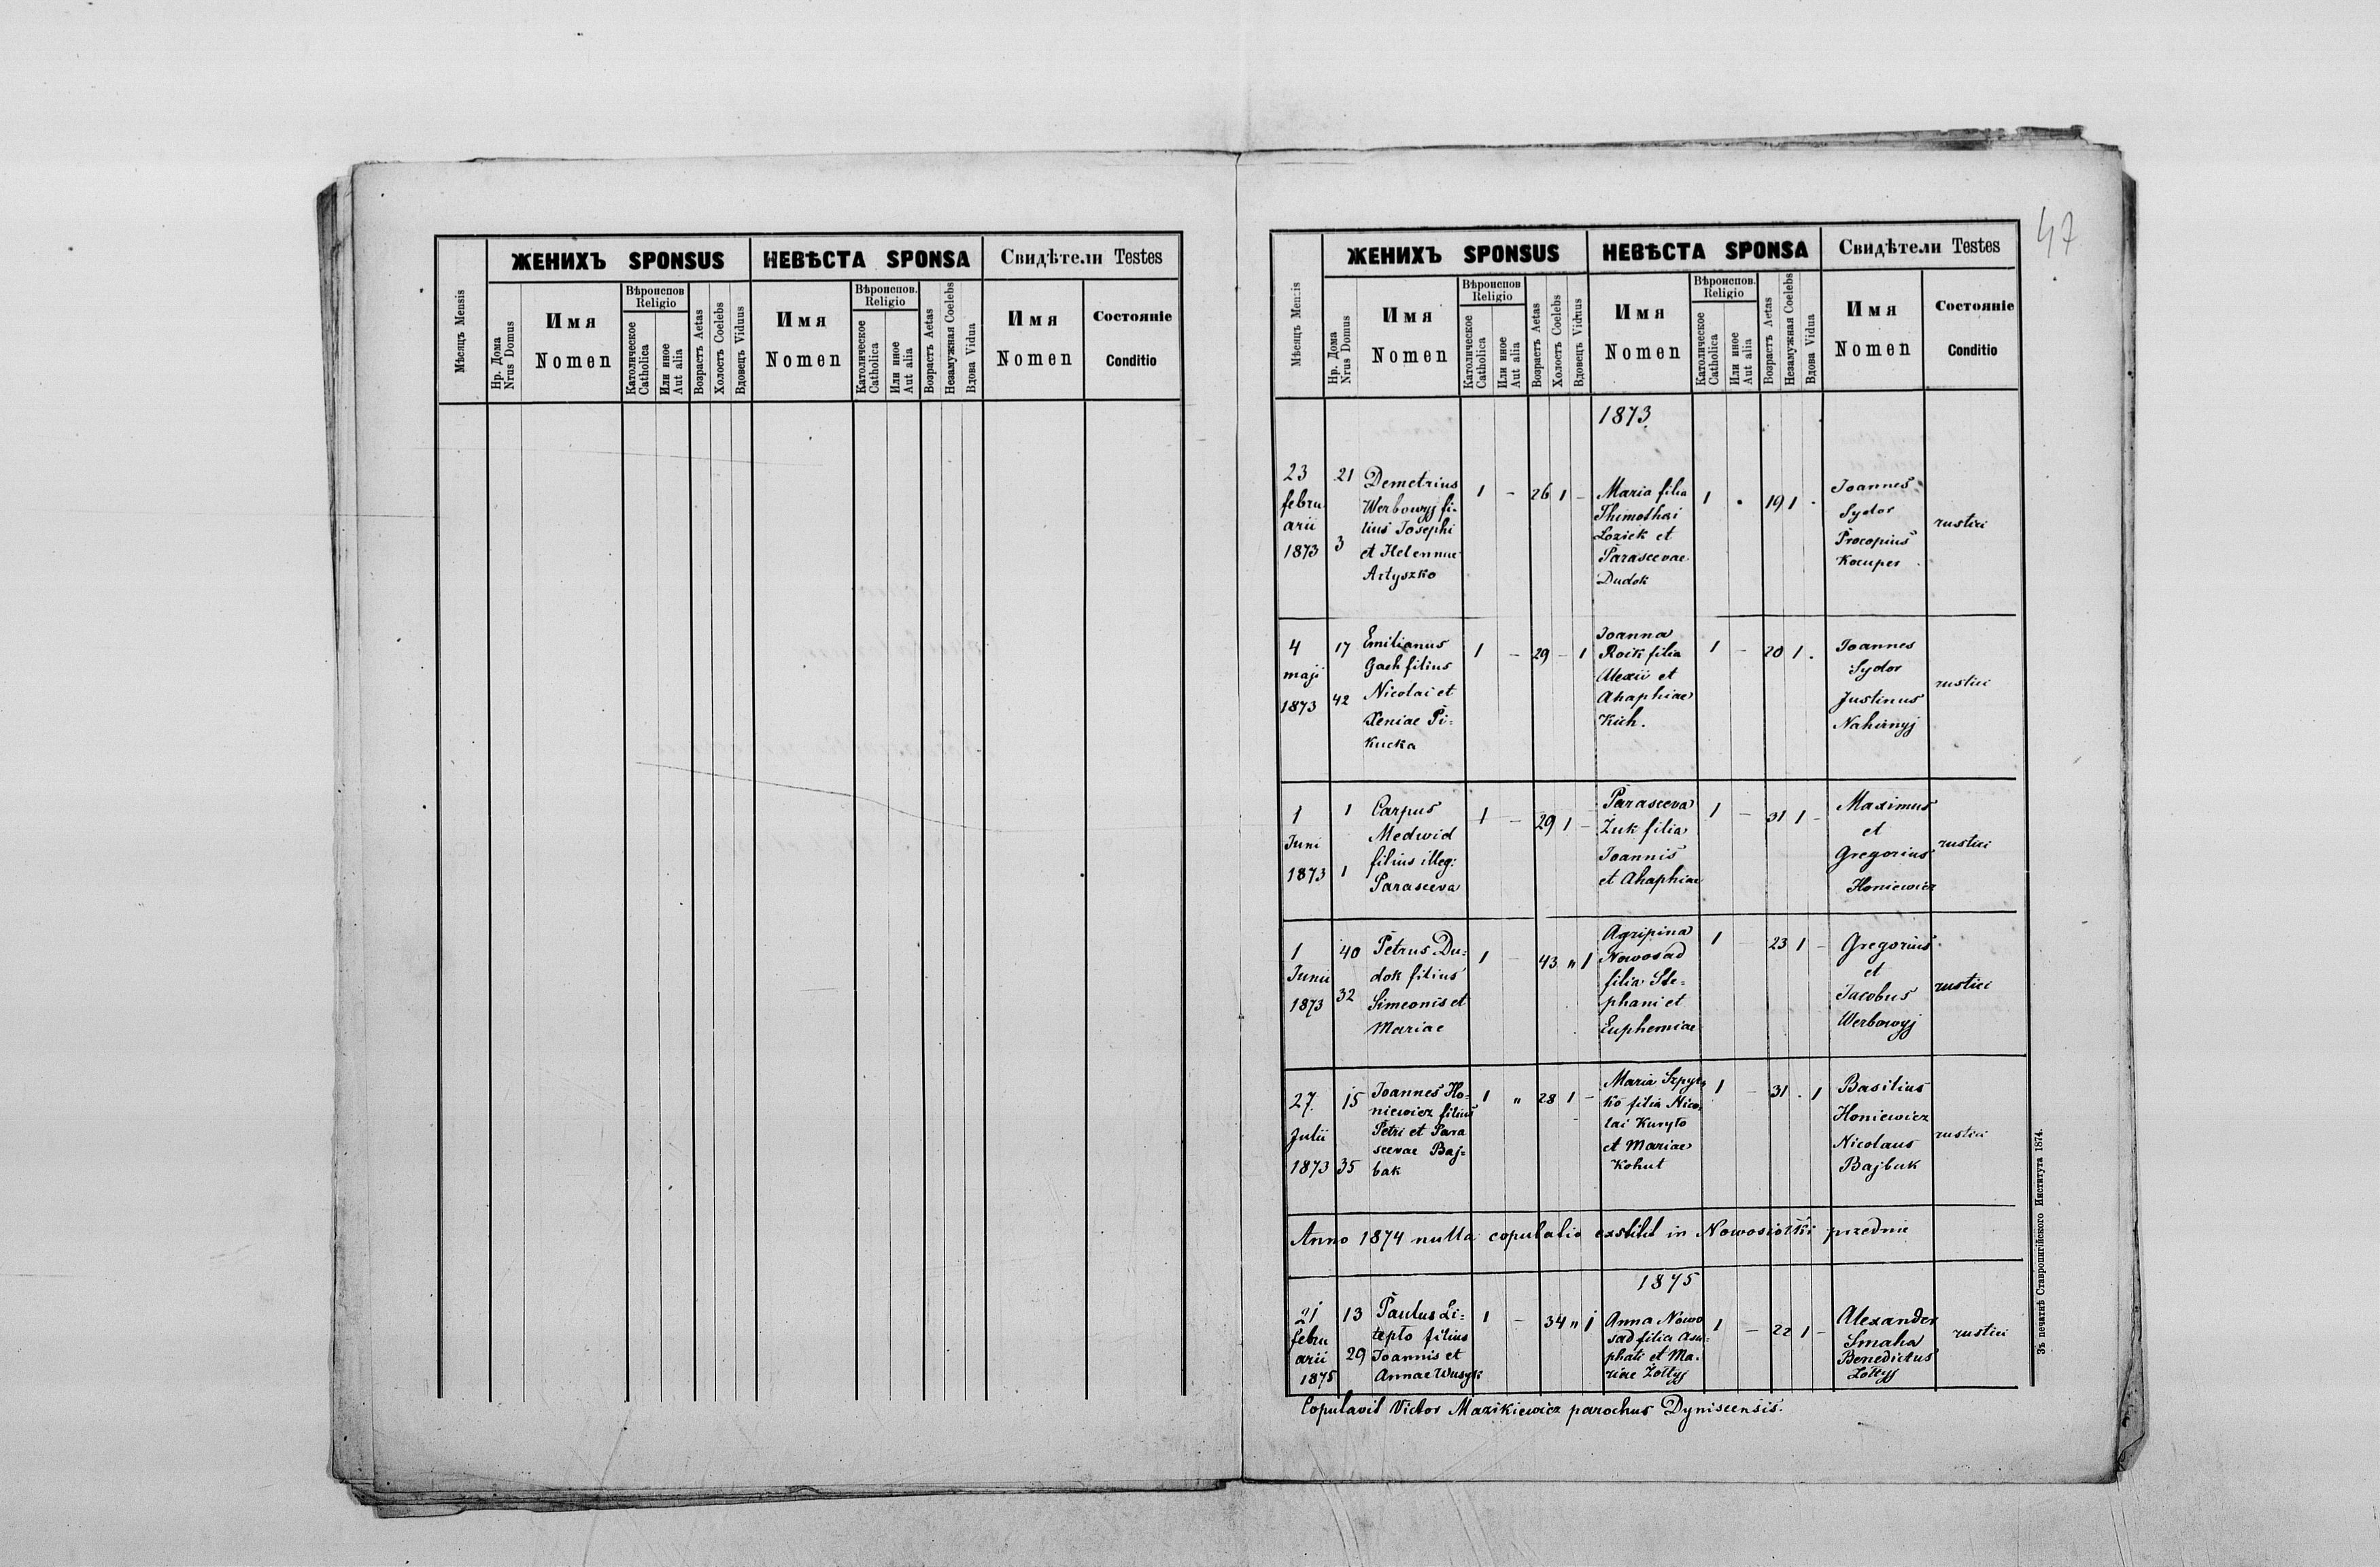 47
Мѣсяцъ Mensis
ЖЕНИХЪ SPONSUS
НЕВѢСТА SPONSA
Свидѣтели Testes
Нр. Дома
Nrus Domus
Имя
Nomen
Вѣроиспов.
Religio
Католическое
Catholica
Или иное
Aut alia
Возрастъ Aetas
Холостъ Coelebs
Вдовецъ Viduus
Имя
Nomen
Вѣроиспов.
Religio
Католическое
Catholica
Или иное
Aut alia
Возрастъ Aetas
Незамужная Coelebs
Вдова Vidua
Имя
Nomen
Состояніе
Conditio
Мѣсяцъ Mensis
ЖЕНИХЪ SPONSUS
НЕВѢСТА SPONSA
Свидѣтели Testes
Нр. Дома
Nrus Domus
Имя
Nomen
Вѣроиспов
Religio
Католическое
Catholica
Или иное
Aut alia
Возрастъ Aetas
Холостъ Coelebs
Вдовецъ Viduus
Имя
Nomen
Вѣроиспов.
Religio
Католическое
Catholica
Или иное
Aut alia
Возрастъ Aetas
Незамужная Coelebs
Вдова Vidua
Имя
Nomen
Состояніе
Conditio
1873
23
febru
arii
1873
21
3
Demetrius
Werbowyj fi-
lius Josephi
et Helennae
Artyszko
1 - 26 1 -
Maria filia
Thimothei
Loziek et
Parascevae
Dudok
1 . 19 1 .
Joannes
Sydor
Procopius
rustici
4
maji
1873
17
42
Emilianus
Gach filius
Nicolai et
Xeniae Pi=
kucka
1 - 29 - 1
Joanna
Roik filia
Alexii et
Ahaphiae
Kich.
1 - 20 1 .
Joannes
Sydor
Justinus
Nahirnyj
rustici
1
Juni
1873
1
1
Carpus
Medwid
filius illeg:
Parasceva
1 - 29 1 -
Parasceva
Żuk filia
Joannis
et Ahaphiae
1 - 31 1 -
Maximus
et
Gregorius
Honiewicz
rustici
1
Junii
1873
40
32
Petrus Du=
dok filius
Simeonis et
Mariae
1 - 43 " 1
Agripina
Nowosad
filia Ste=
phani et
Euphemiae
1 - 23 1 -
Gregorius
et
Jacobus
Werbowyj
rustici
27.
Julii
1873
15
35
Joannes Ho-
niewicz filius
Petri et Para
scevae Baj=
bak
1 " 28 1 -
Maria Szpyt
ko filia Nico
lai Kuryło
et Mariae
Kohut
1 - 31 . 1
Basilius
Honiewicz
Nicolaus
Bajbuk
rustici
Anno 1874 nulla copulatio exstitit in Nowosiołki przednie
1875
21
febru
arii
1875
13
29
Paulus Li=
tepło filius
Joannis et
Annae Wusyk
1 - 34 " 1
Anna Nowo
sad filia Asa=
phati et Ma.
riae Żołtyj
1 - 22 1 -
Alexander
Smaha
Benedictus
Żołtyj
rustici
Copulavit Victor Mazikiewicz parochus Dyniscensis.
Зъ печатнѣ Ставропигійского Института 1874.